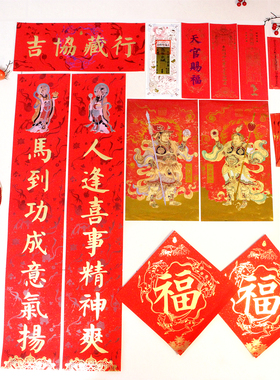 吉協藏行
天官賜福
人逢喜事精神爽
馬到功成意氣揚
福
福